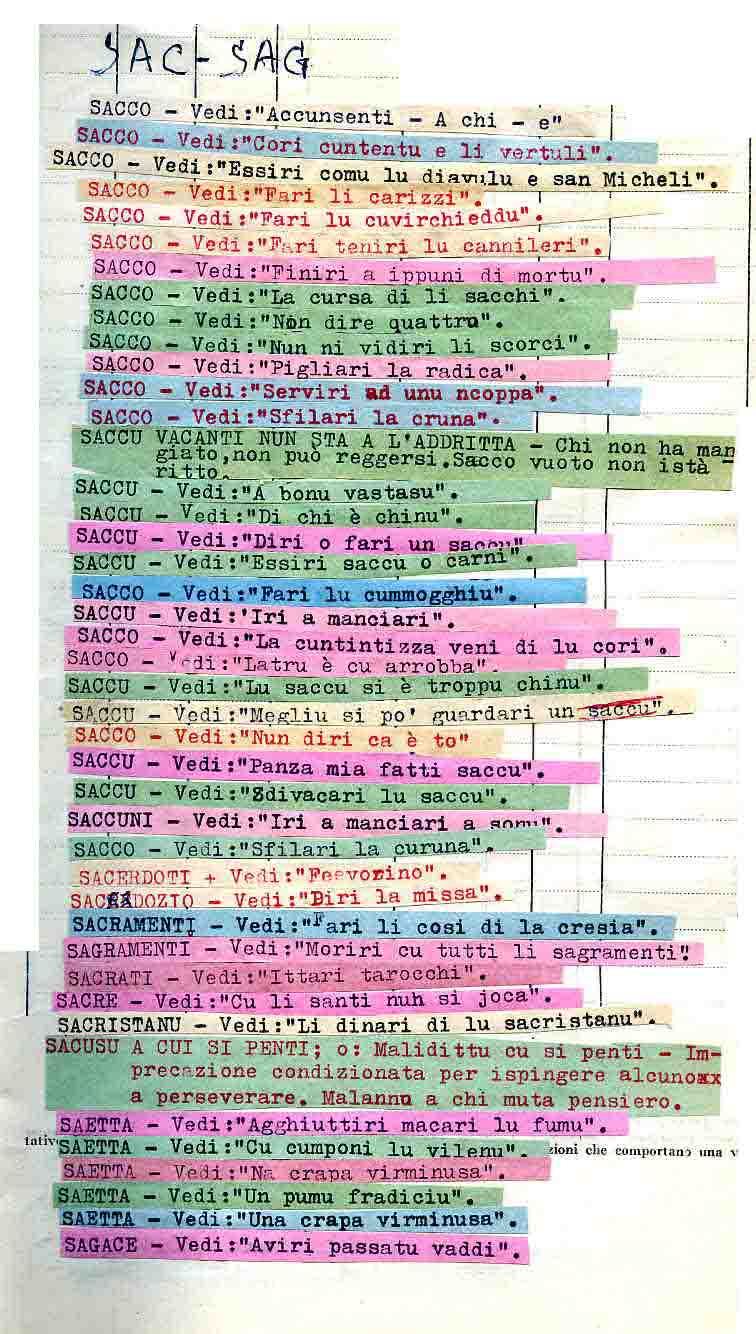 SAC - SAG
SACCO - Vedi:"Accunsenti - A chi - e"
SACCO - Vedi:"Cori cuntentu e li vertuli".
SACCO - Vedi:"Essiri comu lu diavulu e san Micheli".
SACCO - Vedi:"Fari li carizzi".
SACCO - Vedi:"Fari lu cuvirchieddu".
SACCO - Vedi:"Fari teniri lu cannileri".
SACCO - Vedi:"Finiri a ippuni di mortu".
SACCO - Vedi:"La cursa di li sacchi".
SACCO - Vedi:"Non dire quattro".
SACCO - Vedi:"Nun ni vidiri li scorci".
SACCO - Vedi:"Pigliari la radica".
SACCO - Vedi:"Serviri ad unu ncoppa".
SACCO - Vedi:"Sfilari la cruna".
SACCU VACANTI NUN STA A L'ADDRITTA - Chi non ha man
giato,non può reggersi.Sacco vuoto non istà -
ritto.
SACCU - Vedi:"A bonu vastasu".
SACCU - Vedi:"Di chi è chinu".
SACCU - Vedi:"Diri o fari un saccu"
SACCU - Vedi:"Essiri saccu o carni".
SACCO - Vedi:"Fari lu cummogghiu".
SACCU - Vedi:'Iri a manciari".
SACCO - Vedi:"La cuntintizza veni di lu cori".
SACCO - Vedi:"Latru è cu arrobba".
SACCU - Vedi:"Lu saccu si è troppu chinu".
SACCU - Vedi:"Megliu si po' guardari un saccu".
SACCO - Vedi:"Nun diri ca è to"
SACCU - Vedi:"Panza mia fatti saccu".
SACCU - Vedi:"Sdivacari lu saccu".
SACCUNI - Vedi:"Iri a manciari a".
SACCO - Vedi:"Sfilari la curuna".
SACERDOTI + Vedi:"Feevorino".
SACERDOZIO - Vedi:"Diri la missa".
SACRAMENTI - Vedi:"Fari li cosi di la cresia".
SAGRAMENTI - Vedi:"Moriri cu tutti li sagramenti".
SACRATI - Vedi:"Ittari tarocchi".
SACRE - Vedi:"Cu li santi nuh si joca".
SACRISTANU - Vedi:"Li dinari di lu sacristanu".
SACUSU A CUI SI PENTI; o: Malidittu cu si penti - Im-
precazione condizionata per ispingere alcunoxx
a perseverare. Malanno a chi muta pensiero.
SAETTA - Vedi:"Agghiuttiri macari lu fumu".
tativ SAETTA - Vedi:"Cu cumponi lu vilenu". zioni che comportano una v
SAETTA - Vedi:"Na crapa virminusa".
SAETTA - Vedi:"Un pumu fradiciu".
SAETTA - Vedi:"Una crapa virminusa".
SAGACE - Vedi:"Aviri passatu vaddi".